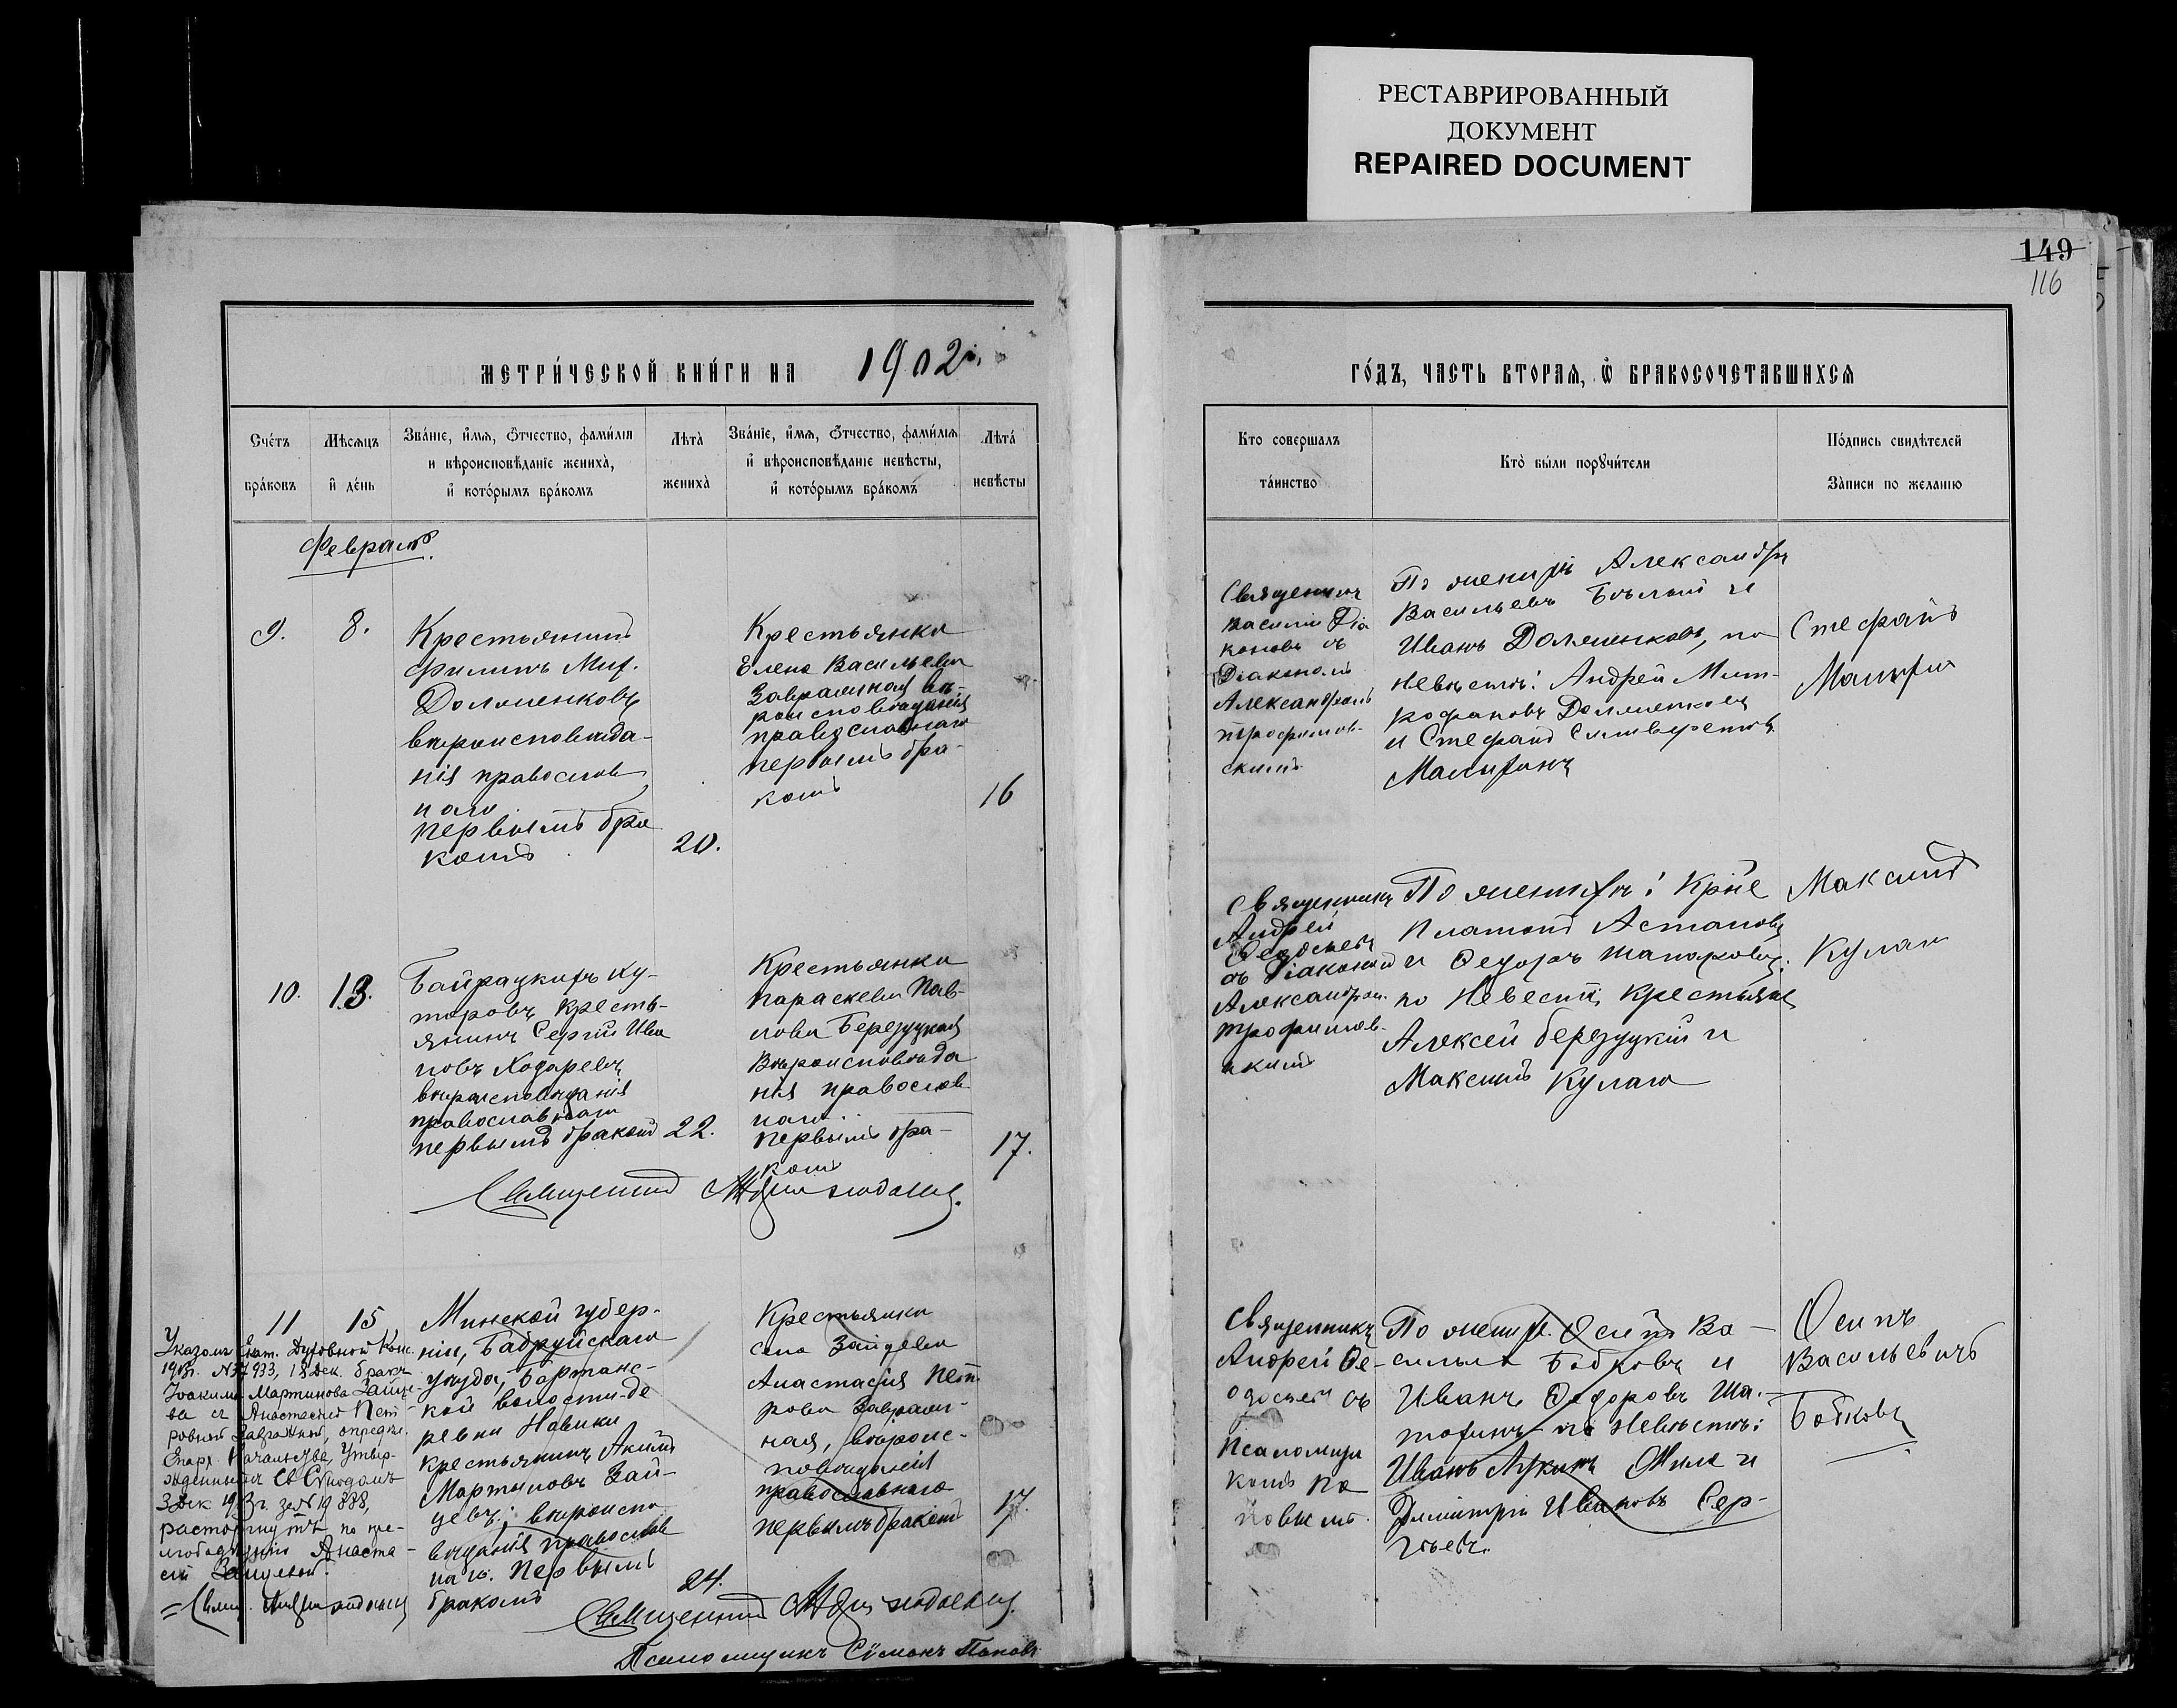 РЕСТАВРИРОВАННЫЙ
ДОКУМЕНТ
REPAIRED DOCUMENT
149
116
МЕТРИ́ЧЕСКОЙ КНИ́ГИ НА 1902
ГО́ДЪ, ЧАСТЬ ВТОРАѦ, Ѽ БРАКОСОЧЕТАВШИХСѦ
Сче́тъ
бра́ковъ
Мѣсѧцъ
и҆ де́нь
Зва́нїе, и҆́мѧ, ѻ҆́тчество, фами́лїѧ
и вѣроисповѣ́данїе жениха̀,
и҆ кото́рымъ бра́комъ
Лѣта̀
жениха̀
Зва́нїе, и҆́мѧ, ѻ҆́тчество, фами́лїѧ
и҆ вѣроисповѣ́данїе невѣ́сты,
и҆ кото́рымъ бра́комъ
Лѣта̀
невѣ́сты
Кто совершалъ
та́инство
Кто̀ бы́ли порꙋчи́тели
По́дпись свидѣ́телей
За́писи по жела́нїю
Февраль
9.
8.
Крестьянинъ
Филипъ Мит.
Долженковъ
вѣроисповѣда-
нія православ
наго
первымъ бра
комъ
20.
Крестьянка
Елена Васильева
Завражная вѣ-
роисповѣданія
православнаго
первымъ бра-
комъ
16
Священникъ
Василій Діа
коновъ съ
Діакономъ
Александромъ
Трофимов-
скимъ
По женихѣ Александръ
Васильевъ Бѣлый и
Иванъ Долженковъ, по
невѣстѣ: Андрей Мит-
рофановъ Долженковъ
и Стефанъ Сильвестровъ
Стефанъ
10.
13.
Байрацкихъ ху-
торовъ Кресть-
янинъ Сергій Ива
новъ Ходаревъ
вѣроисповѣданія
православнаго
первымъ бракомъ
22.
Крестьянка
Параскева Пав-
лова Березуцкая
Вѣроисповѣда
нія православ
наго
первымъ бра-
комъ
17.
Священникъ
Священникъ
Андрей
Ѳеодосьевъ
съ Діакономъ
Александром.
Трофимов-
скимъ
По женихѣ: Кр-не
Платонъ Астаповъ
и Ѳедоръ Шапоровъ;
по Невестѣ, Крестьяне
Алексей Березуцкій и
Максимъ Кулаго
Максимъ
Кулаго
11
15
Минской губер-
ніи, Бабруйскаго
уѣзда, Бортанс-
кой волости-де
ревни Новики
крестьянинъ Акимъ
Мартыновъ Зай-
цевъ; вѣроиспо
вѣданія православ
наго. Первымъ
бракомъ
24.
Крестьянка
села Зайцева
Анастасія Пет-
рова Завраж-
ная, вѣроис-
повѣданія
православнаго
первымъ бракомъ
17.
Священникъ
Андрей Ѳе-
одосьевъ съ
Псаломщи
комъ По
повымъ.
По жених. Осипъ Ва-
сильев Бобковъ и
Иванъ Ѳедоровъ Ша-
по Невѣстѣ:
Иванъ Лукинъ Жила и
Димитрій Ивановъ Сер-
гѣевъ.
Осипъ
Васильевичъ
Бобковъ
Указомъ Екат. Духовной Конс.
1913г. №37933, 18 Дек. бракъ
Іоакима Мартинова Зайце-
ва съ Анастасіей Пет-
ровной Завражной, опредѣл.
Епарх. Начальства, Утвер-
жденнымъ Св. Синодомъ
3 Дек 1913г. за №19888,
расторгнутъ по пре-
любодѣянію Анаста-
сіи Зайцевой.
Священникъ
Псаломщикъ Сѵмонъ Поповъ